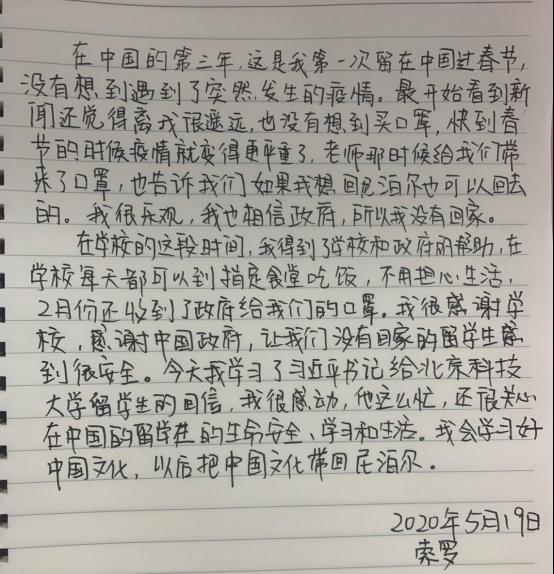 在中国的第三年,这是我第一次留在中国过春节,
没有想到遇到了突然发生的疫情。最开始看到新
闻还觉得离我很遥远,也没有想到买口罩,快到春
节的时候疫情就变得更严重了,老师那时候给我们带
来了口罩,也告诉我们如果我想回尼泊尔也可以回去
的。我很乐观,我也相信政府,所以我没有回家。
在学校的这段时间,我得到了学校和政府的帮助,在
学校每天都可以到指定食堂吃饭,不用担心生活,
2月份还收到了政府给我们的口罩。我很感谢学
校,感谢中国政府,让我们没有回家的留学生感
到很安全。今天我学习了习近平书记给北京科技
大学留学生的回信,我很感动,他这么忙,还很关心
在中国的留学生的生命安全、学习和生活。我会学习好
中国文化,以后把中国文化带回尼泊尔。
2020年5月19日
索罗